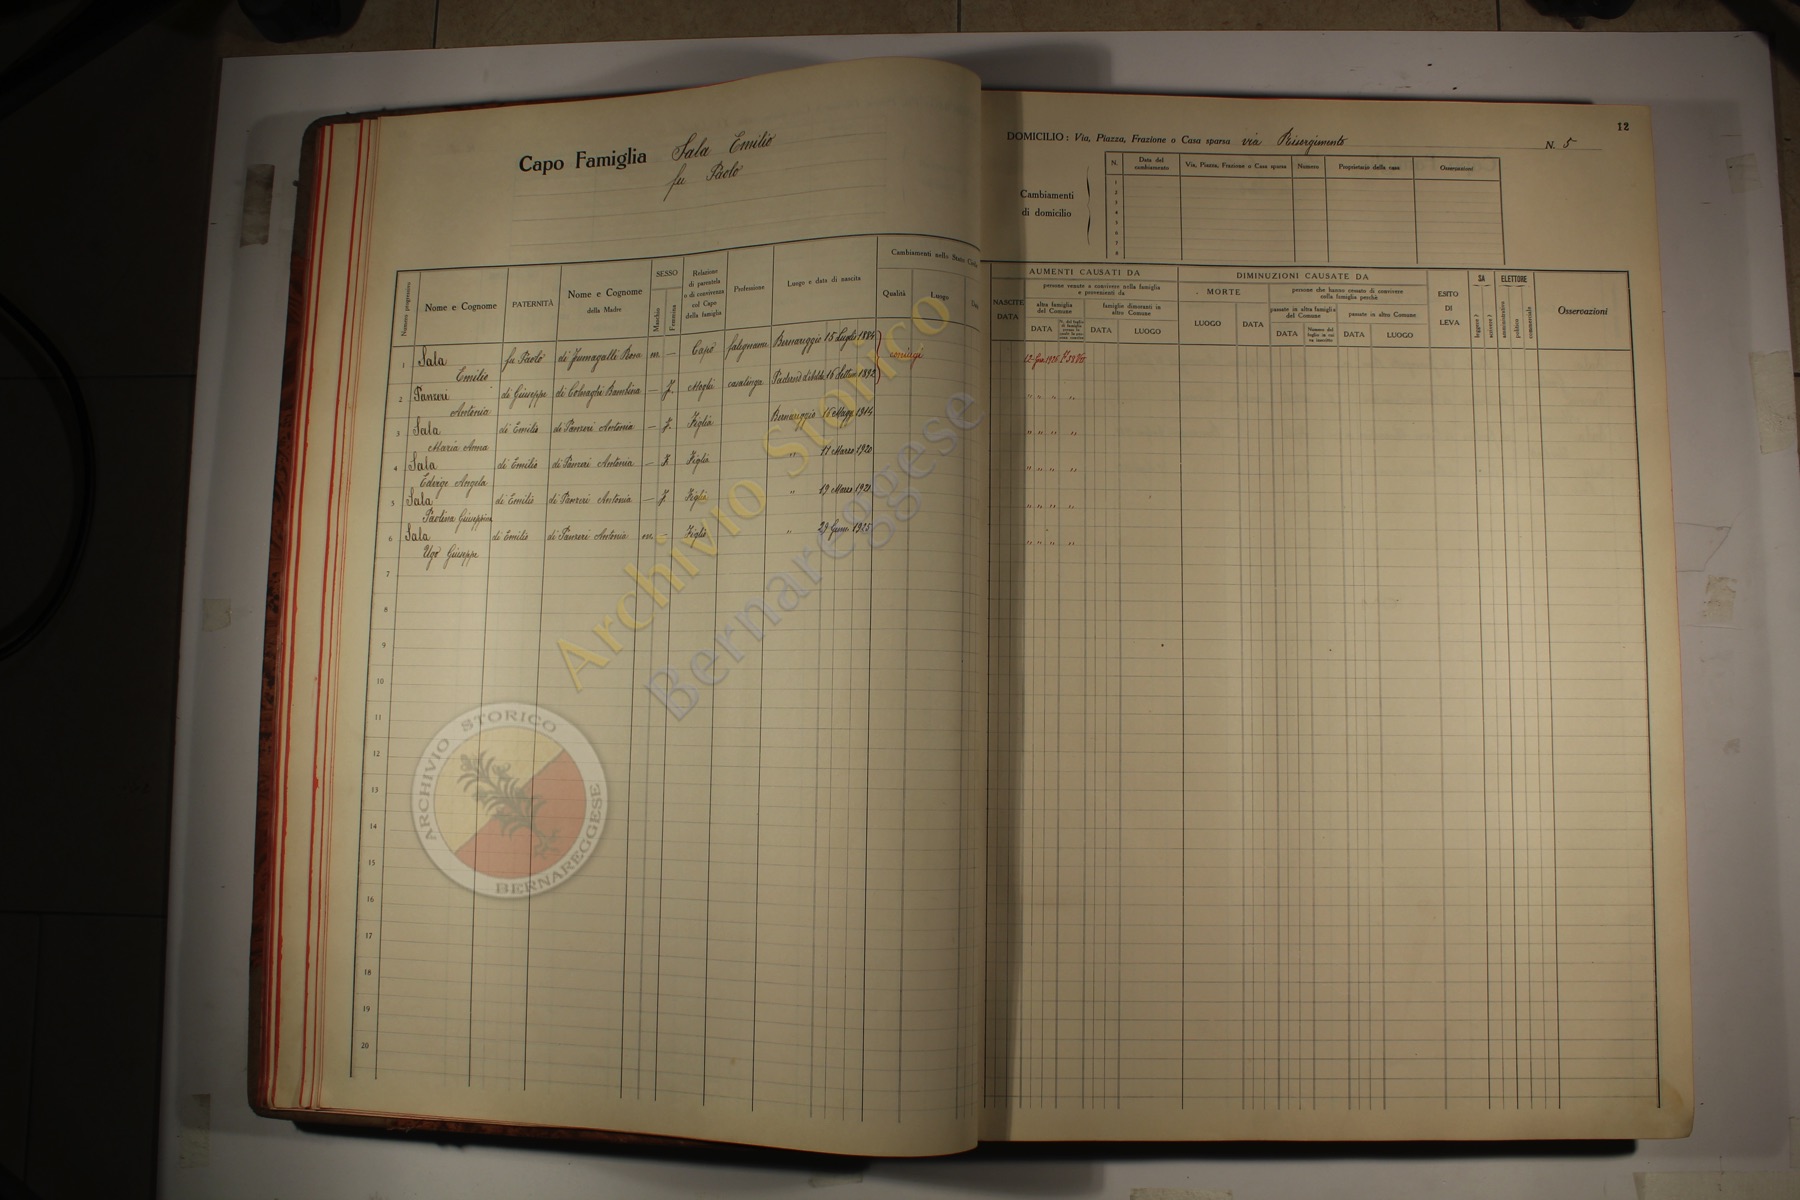 12
Capo Famiglia Sala Emilio
fu Paolo
DOMICILIO: Via, Piazza, Frazione o Casa sparsa via Risorgimento N. 5
Cambiamenti
di domicilio
N. Data del cambiamento Via, Piazza, Frazione o Casa sparsa Numero Proprietario della casa Osservazioni
1
2
3
4
5
6
7
8
Numero progressivo
Nome e Cognome
PATERNITÀ
Nome e Cognome
della Madre
SESSO
Maschio
Femmina
Relazione
di parentela
o di convivenza
col Capo
della famiglia
Professione
Luogo e data di nascita
Cambiamenti nello Stato Civile
Qualità
Luogo
Data
NASCITE
DATA
AUMENTI CAUSATI DA
persone venute a convivere nella famiglia
e provenienti da
altra famiglia
del Comune
famiglie dimoranti in
altro Comune
DATA
DATA
LUOGO
DIMINUZIONI CAUSATE DA
MORTE
LUOGO
DATA
persone che hanno cessato di convivere
colla famiglia perchè
passate in altra famiglia
del Comune
passate in altro Comune
DATA
DATA
LUOGO
ESITO
DI
LEVA
SA
leggere
scrivere
ELETTORE
amministrativo
politico
commerciale
Osservazioni
1 Sala fu Paolo di Fumagalli Rosa m. — Capo falegname Bernareggio 15 Luglio 1884 coniugi
Emilio
2 Panzeri de Giuseppe di Colnaghi Bambina — F. Moglie casalinga 16 1892
Antonia
3 Sala di Emilio di Panzeri Antonia — F. Figlia Bernareggio 16 Magg. 1914
Maria Anna
4 Sala di Emilio di Panzeri Antonia — F. Figlia " 11 Marzo 1920
Edvige Angela
5 Sala di Emilio di Panzeri Antonia — F. Figlia " 19 Marzo
Paolina Giuseppina
6 Sala di Emilio di Panzeri Antonia m. — Figlio " 29 1925
Ugo Giuseppe
7
8
9
10
11
12
13
14
15
16
17
18
19
20
Archivio Storico
Bernareggese
ARCHIVIO STORICO
BERNAREGGESE